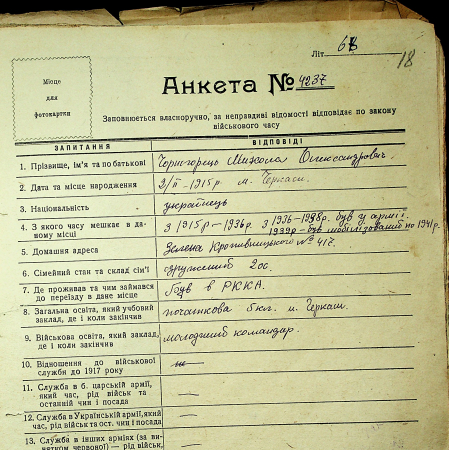 Літ 68
18
Місце
для
фотокартки
Анкета № 4237
Заповнюється власноручно, за неправдиві відомості відповідає по закону
військового часу
ЗАПИТАННЯ ВІДПОВІДІ
1. Прізвище, ім'я та по батькові Чорногорець Микола Олександрович.
2. Дата та місце народження 2/II-1915р м. Черкаси.
3. Національність українець
4. З якого часу мешкає в даному місці з 1915р – 1936р. з 1936-1938р. був у армії.
1939р – був мобілізований по 1941р.
5. Домашня адреса Зелена Кропивницького № 417.
6. Сімейний стан та склад сім'ї одружений 2ос.
7. Де проживав та чим займався
до переїзду в дане місце Був в РККА.
8. Загальна освіта, який учбовий
заклад, де і коли закінчив початкова 5кл. м. Черкаси.
9. Військова освіта, який заклад,
де і коли закінчив молодший командир.
10. Відношення до військової
служби до 1917 року —
11. Служба в б. царській армії,
який час, рід військ та
останній чин і посада —
12. Служба в Українській армії, який
час, рід військ та ост. чин і посада —
13. Служба в інших арміях (за ви-
нятком червоної) — рід військ,